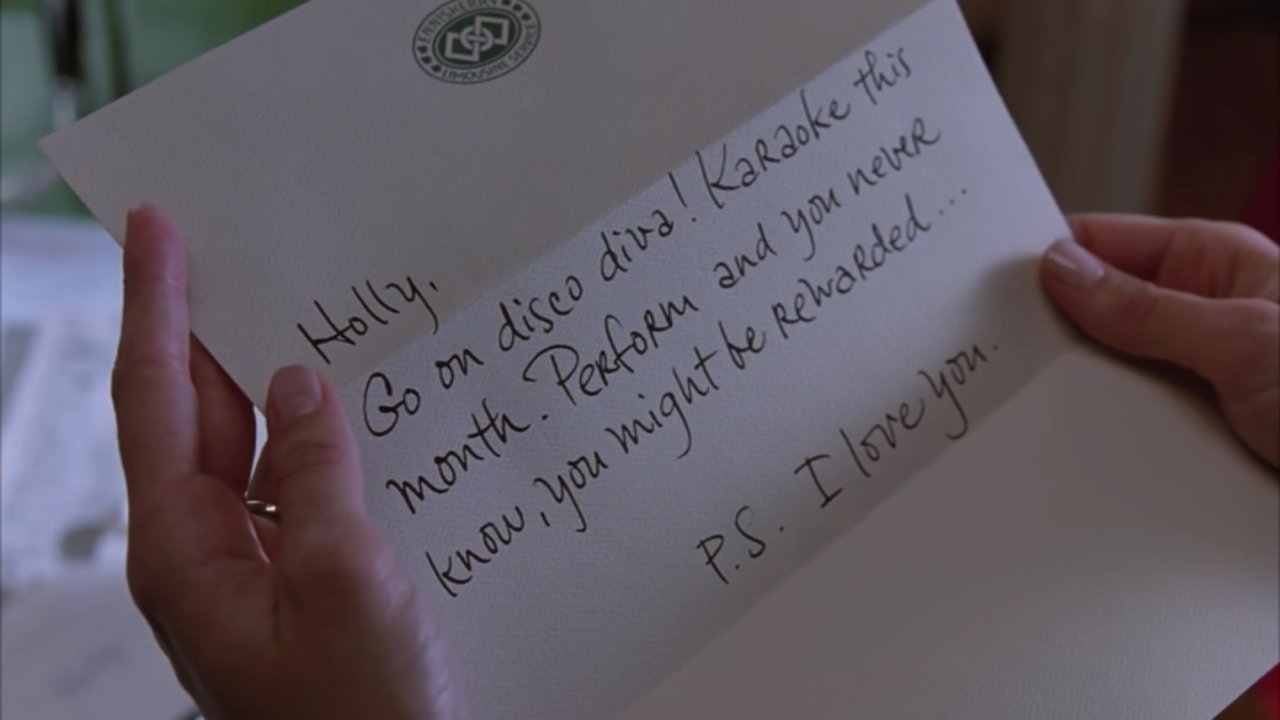 ENNISKERRY
LIMOUSINE SERVICE
Holly,
Go on disco diva! Karaoke this
month. Perform and you never
know, you might be rewarded...
P.S. I love you.